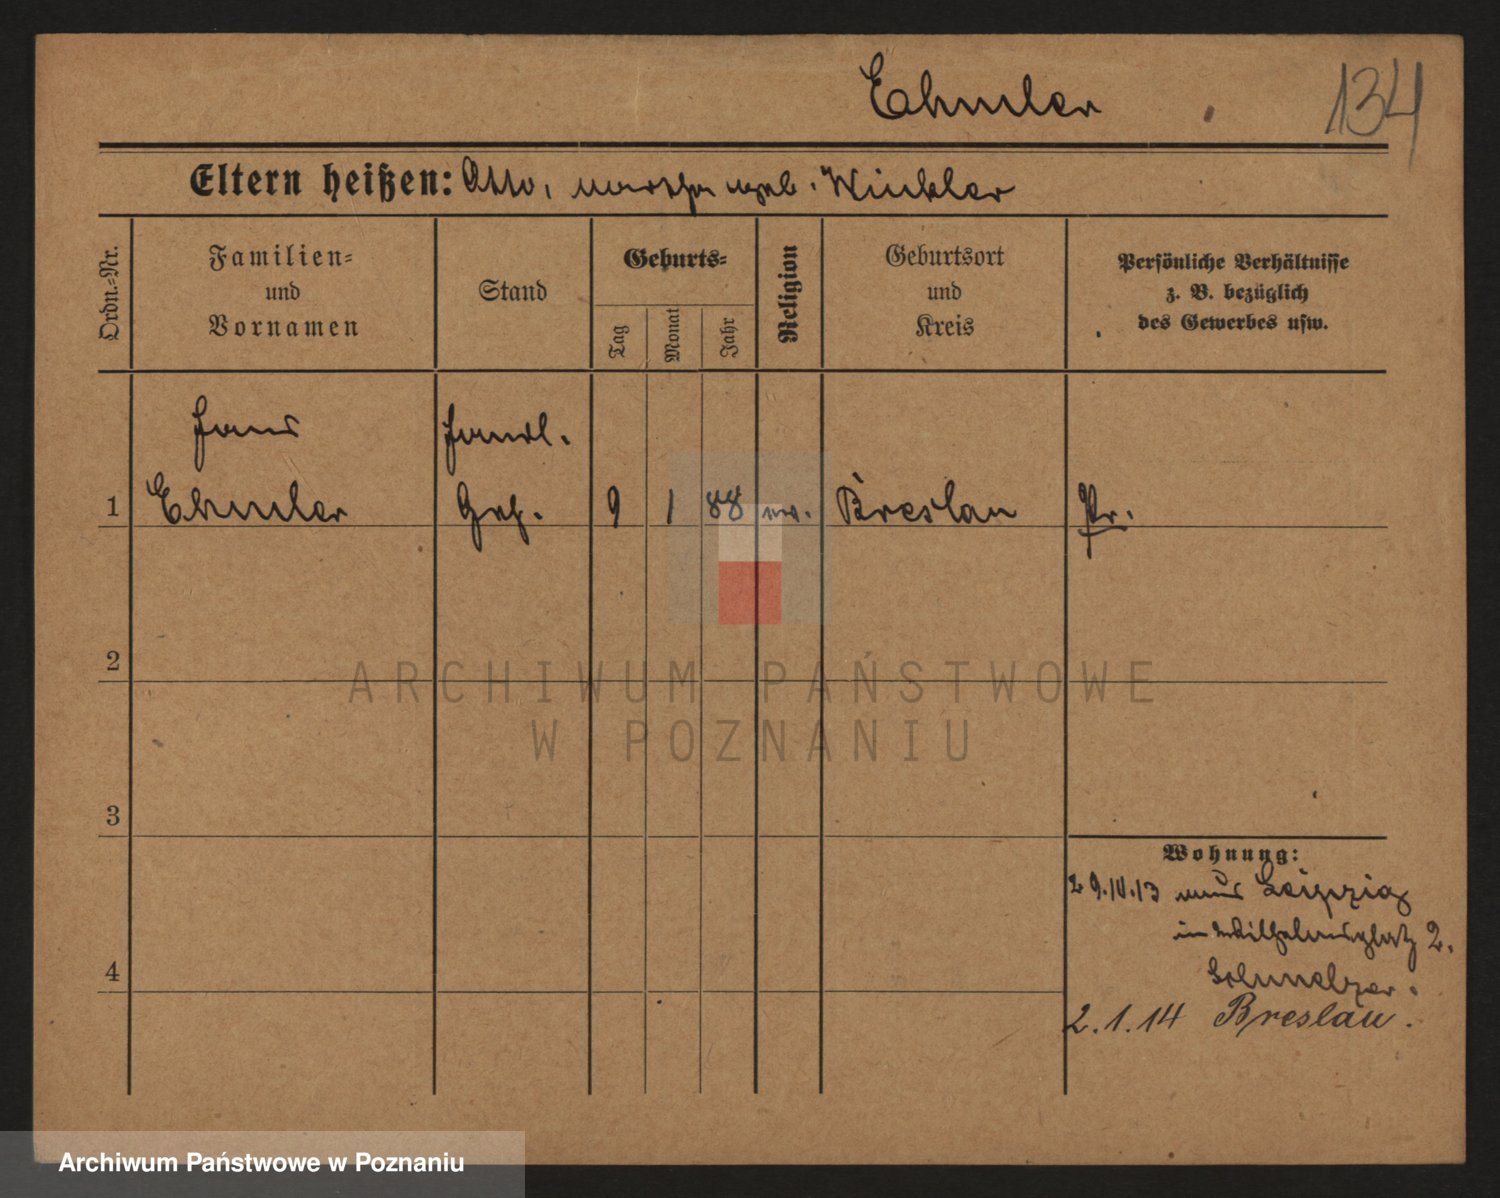 Ehmler
134
Eltern heißen: Otto, geb. Winkler
Ordn.-Nr.
Familien-
und
Vornamen
Stand
Geburts-
Tag
Monat
Jahr
Religion
Geburtsort
und
Kreis
Persönliche Verhältnisse
z. B. bezüglich
des Gewerbes usw.
Hans
Handl.
1 Ehmler Geh. 9 1 88 ev. Breslau Pr.
2
3
4
Wohnung:
29.10.13 aus Leipzig
in Wilhelmsplatz 2.
2.1.14 Breslau.
ARCHIWUM PAŃSTWOWE
W POZNANIU
Archiwum Państwowe w Poznaniu